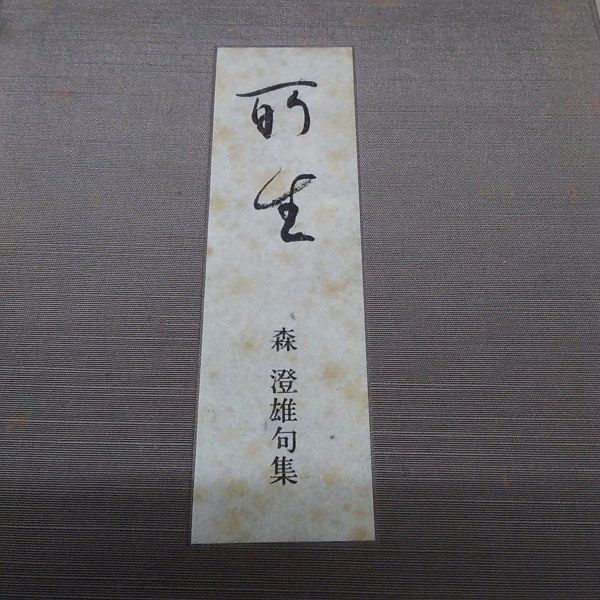 所生
森澄雄句集